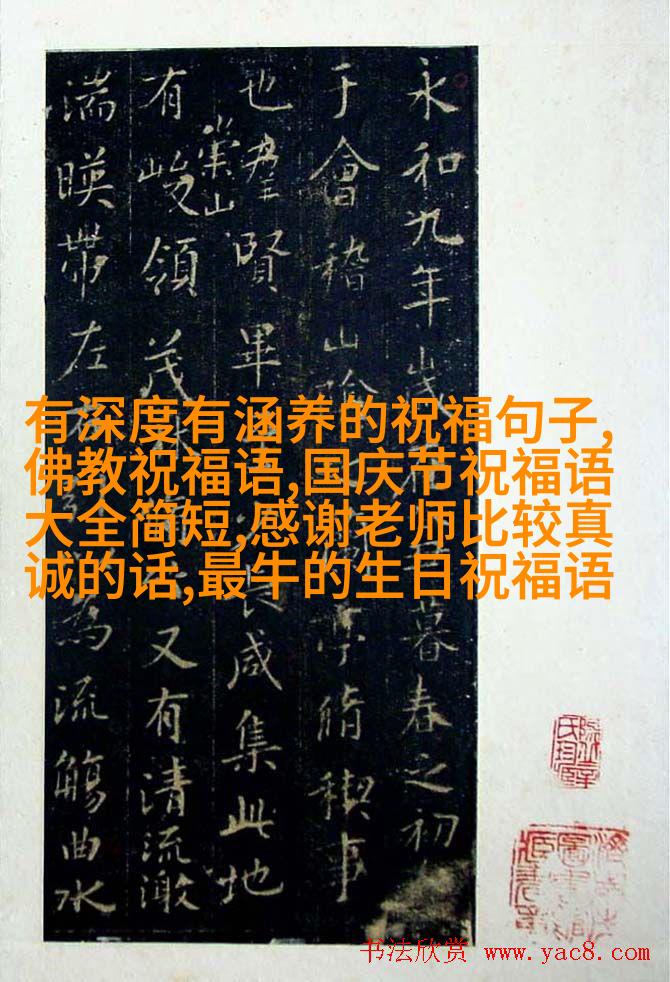 永和九年歲在暮春之初
于會稽山陰亭脩禊事
也羣賢畢長咸集此地
有崇山峻領茂林又有清流激
湍暎帶左右為流觴曲水
有深度有涵养的祝福句子,
佛教祝福语,国庆节祝福语
大全简短,感谢老师比较真
诚的话,最牛的生日祝福语
书法欣赏 www.yac8.com